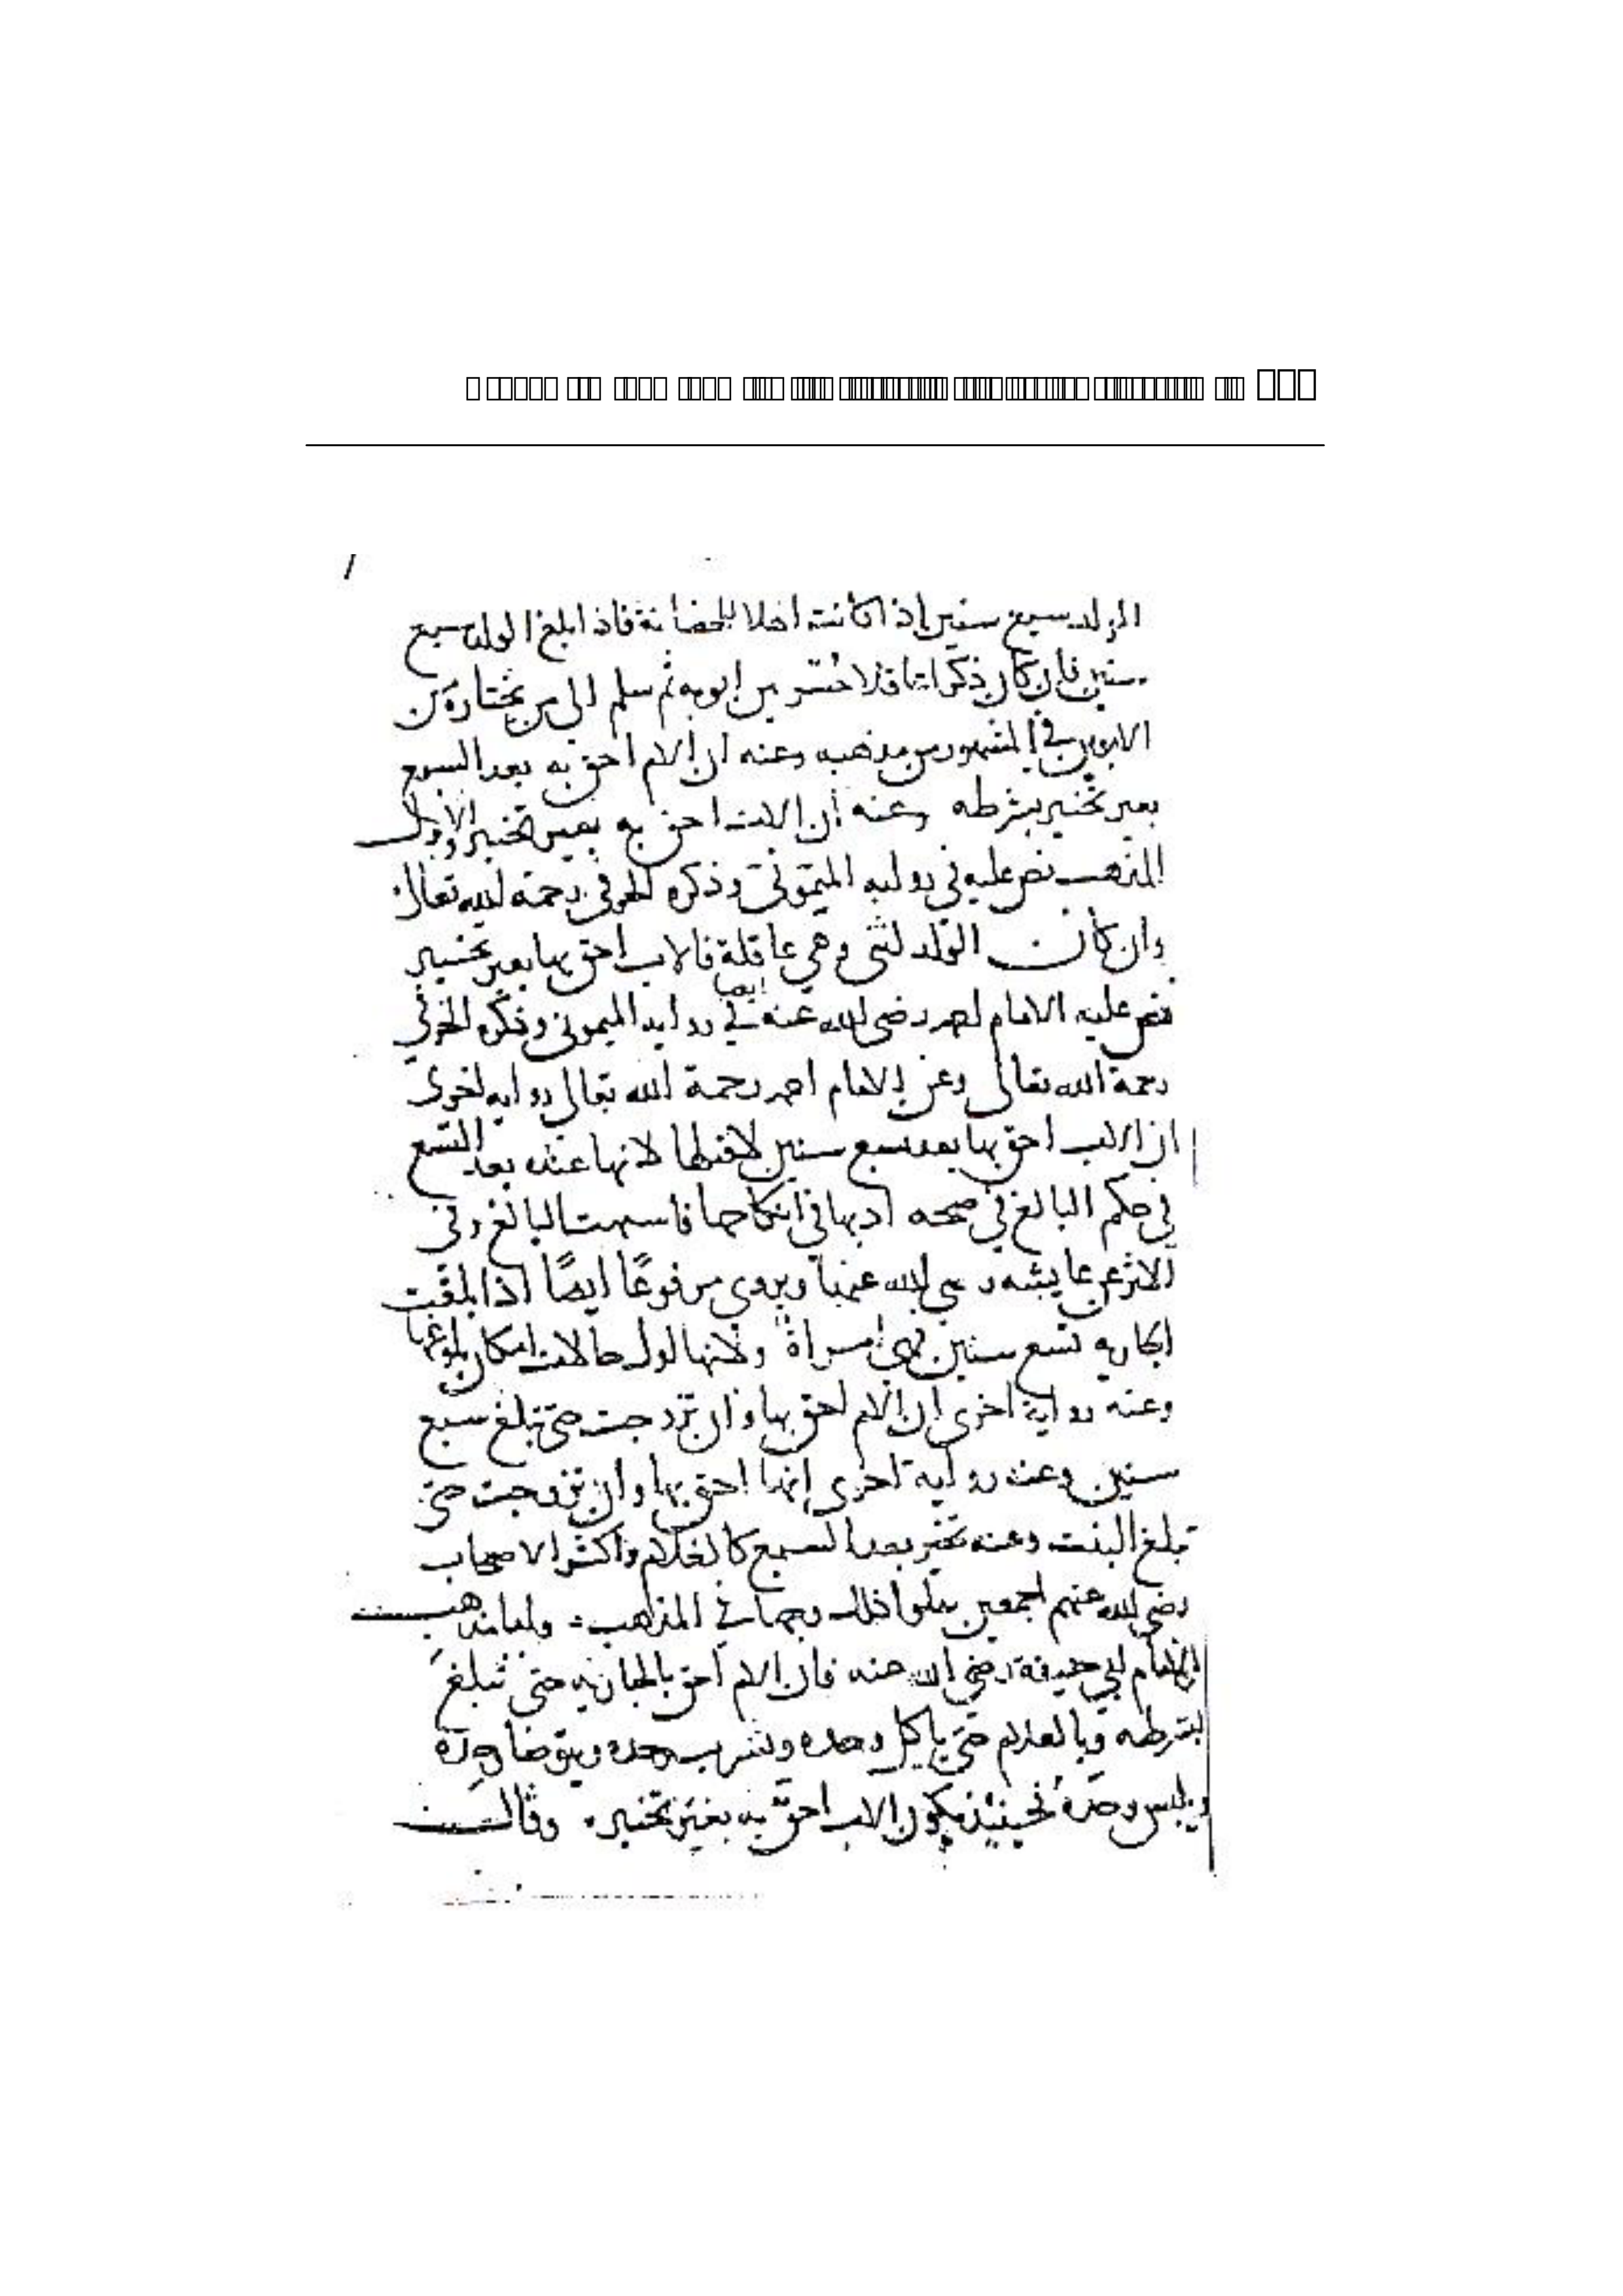 الولد سبع سنين اذا كانت اهلا للحضانة فاذا بلغ الولد سبع
سنين فان كان ذكرا بين ابويه ثم سلم الى من يختاره من
الابوين في المشهور من مذهبه وعنه ان الام احق به بعد السبع
بغير تخيير بشرطه وعنه ان الاب احق به بغير تخيير والاول
المذهب نص عليه في رواية الميموني وذكره الخرقي رحمه الله تعالى
وان كان الولد انثى وهي عاقلة فالاب احق بها بغير تخيير
نص عليه الامام احمد رضي الله عنه ايضا في رواية الميموني وذكره الخرقي
رحمة الله تعالى وعن الامام احمد رحمة الله تعالى رواية اخرى
ان الاب احق بها بعد سبع سنين لا قبلها لانها عنده بعد التسع
في حكم البالغ في صحه اذنها في انكاحها فاشبهت البالغ وفي
الاثر عن عايشه رضي الله عنها ويروى مرفوعًا ايضًا اذا بلغت
الجاريه تسع سنين فهي امراة ولانها اول حالات امكان بلوغها
وعنه رواية اخرى ان الام احق بها وان تزوجت حتى تبلغ سبع
سنين وعنه رواية اخرى انها احق بها وان تزوجت حتى
تبلغ البنت وعنه تخير بعد السبع كالغلام واكثر الاصحاب
رضي الله عنهم اجمعين ذلك في المذهب واما مذهب
الامام ابي حنيفة رضي الله عنه فان الام احق بالجاريه حتى تبلغ
بشرطه وبالغلام حتى ياكل وحده ويشرب وحده ويتوضا وحده
ويلبس وحده فحينئذ يكون الاب احق به بغير تخيير وقالت